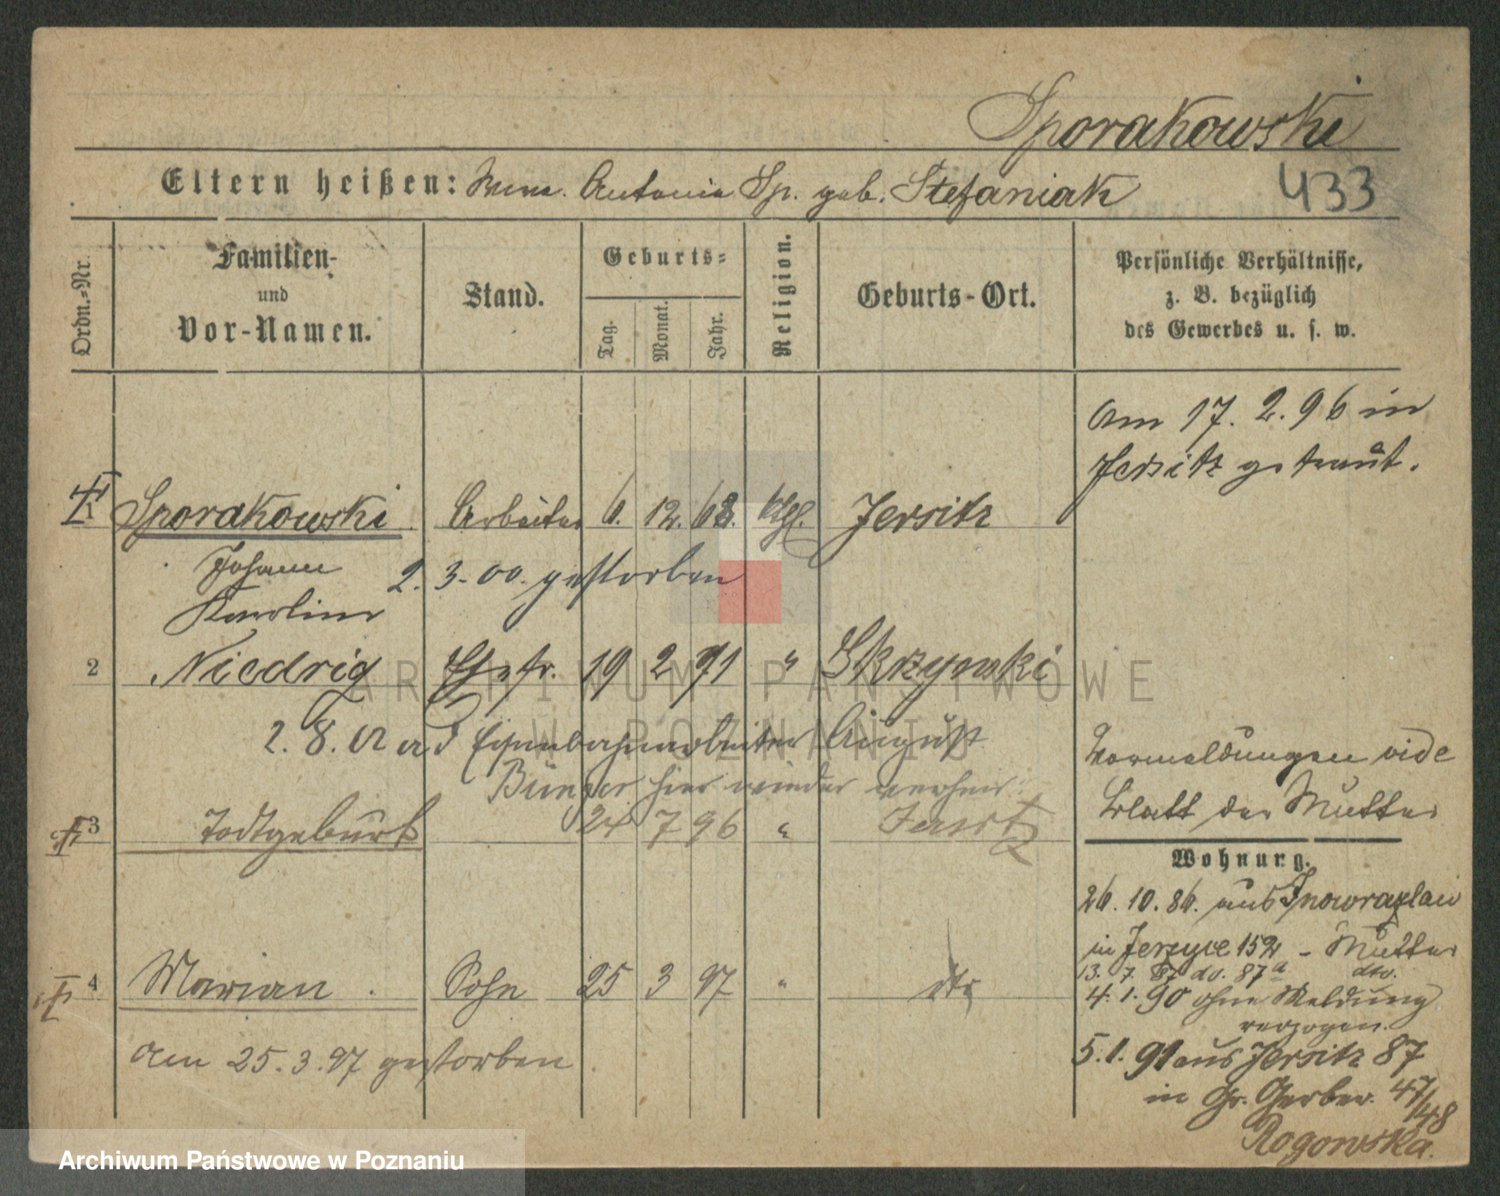 Sporakowski
Eltern heißen: Wwe. Antonie Sp. geb. Stefaniak 433
Ordn.-Nr.
Familien-
und
Vor-Namen.
Stand.
Geburts-
Tag.
Monat.
Jahr.
Religion.
Geburts-Ort.
Persönliche Verhältnisse,
z. B. bezüglich
des Gewerbes u. s. w.
am 17. 2. 96 in
Jersitz getraut.
Sporakowski Arbeiter 6. 12. 68. kthl. Jersitz
Johann 2. 3. 00. gestorben
2 Niedrig Ehefr. 19 2 71 " Skrzynki
2. 8. 02 a d Eisenbahnarbeiter August
Bünger hier wieder verheir.
Vormeldungen vide
Blatt der Mutter
3 Todtgeburt 24 7 96 " Jersitz
Wohnung.
26. 10. 86. aus Inowrazlaw
in Jerzyce 152 - Mutter
13. 7. 87 do. 87a dto.
4 Marian. Sohn 25 3 97 " dto
4. 1. 90 ohne Meldung
verzogen.
am 25. 3. 97 gestorben
5. 1. 91 aus Jersitz 87
in Gr. Gerber. 47/48
Rogowska.
ARCHIWUM PAŃSTWOWE
W POZNANIU
Archiwum Państwowe w Poznaniu